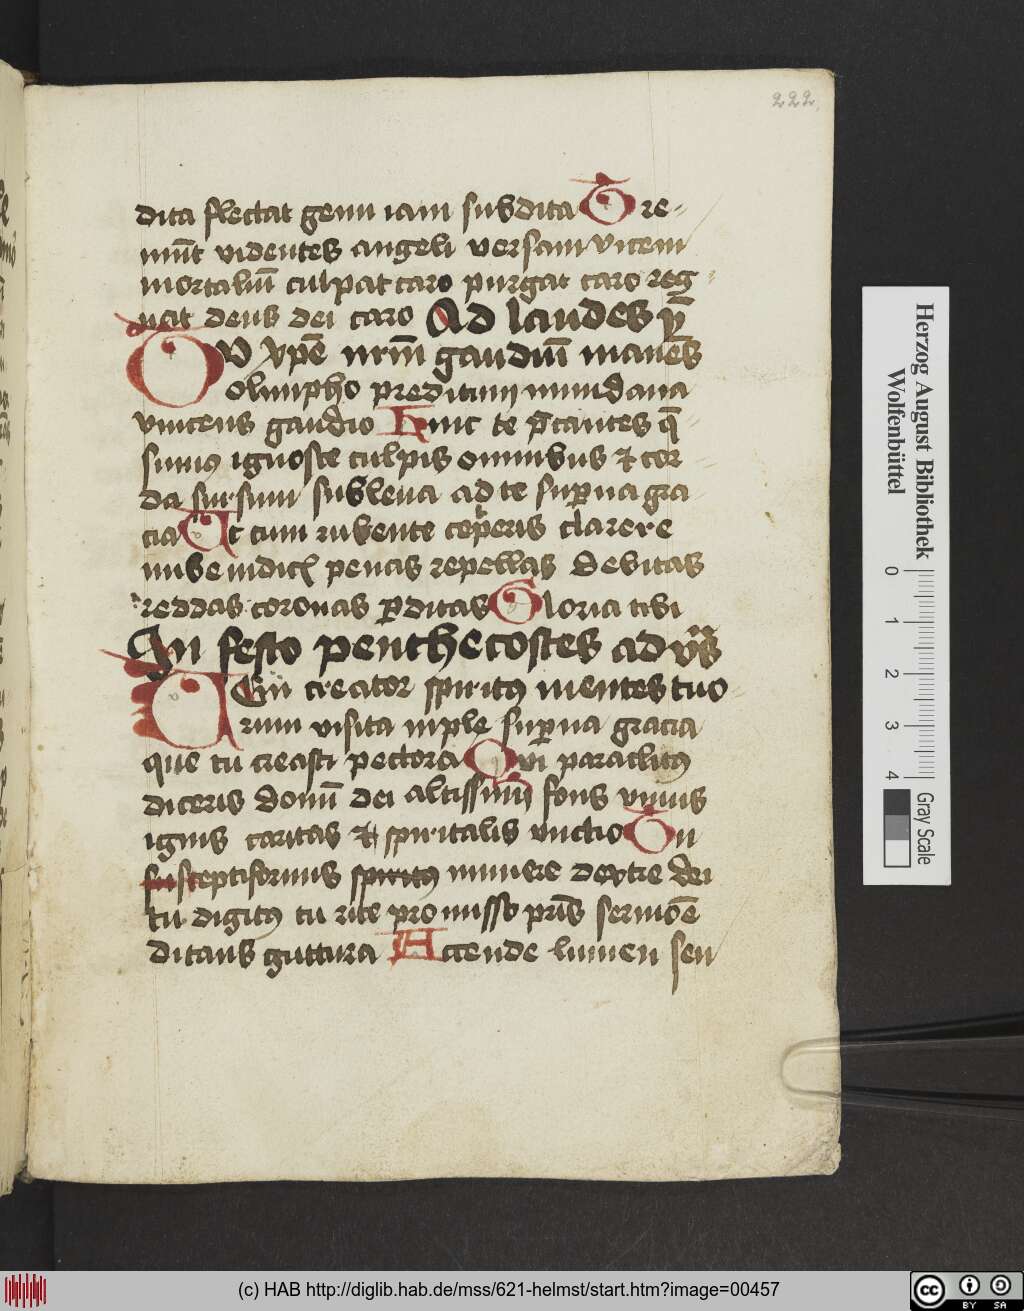 222.
dita flectat genu iam subdita Tre-
mūt videntes angeli versam vicem
mortaliū culpat caro purgat caro reg
nat deus dei caro Ad laudes yp̄
TV xpē nr̄m gaudiū manēs
olimpho preditum mundana
vincens gaudio Hinc te p̄cantes q̄s
sumus ignosce culpis omnibus et cor
da sursum subleua ad te sup̄na gra
cia Ut cum rubente ceperis clarere
nube iudicis penas repellas debitas
reddas coronas p̄ditas Gloria tibi
In festo penthecostes ad vrās
VEni creator spiritus mentes tuo
rum visita imple sup̄na gracia
que tu creasti pectora Qui paraclitus
diceris donū dei altissimi fons viuus
ignis caritas et spiritalis vnctio Tu
septiformis spiritus munere dextre dei
tu digitus tu rite promisso pr̄is sermōe
ditans guttura Accende lumen sen
Herzog August Bibliothek
Wolfenbüttel
0 1 2 3 4
Gray Scale
(c) HAB http://diglib.hab.de/mss/621-helmst/start.htm?image=00457
cc BY SA